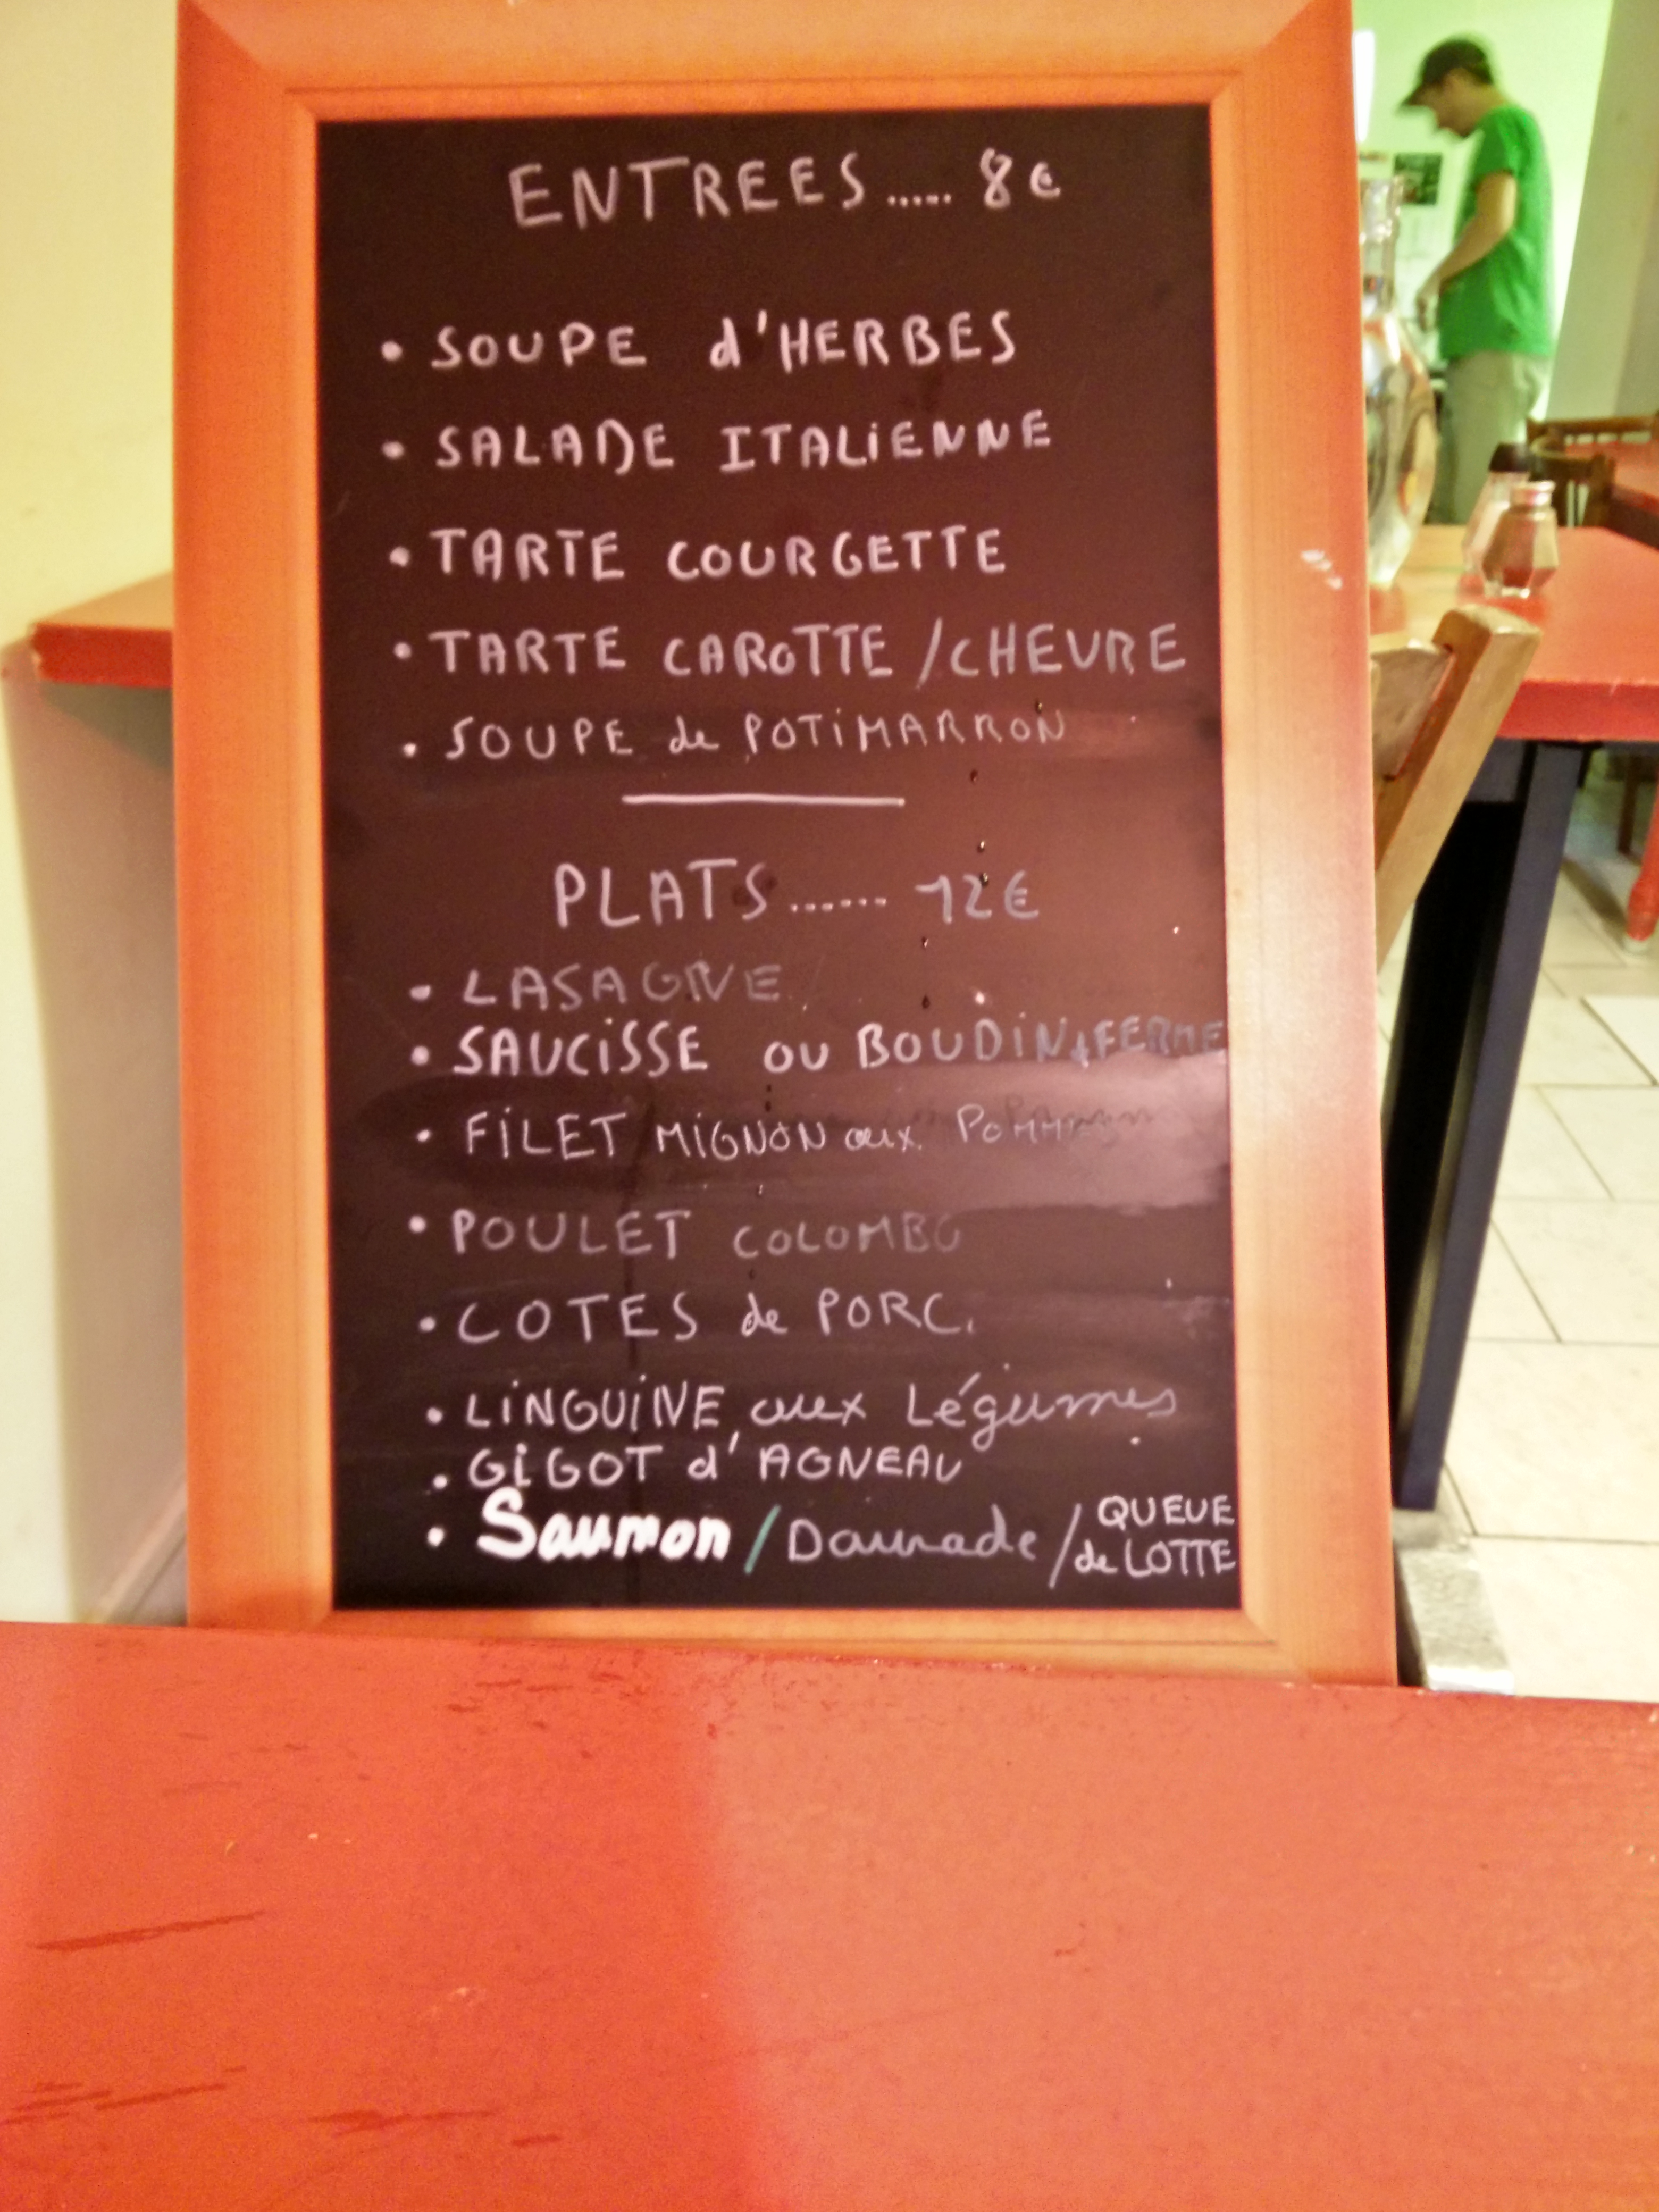 ENTREES ..... 8€
• SOUPE d'HERBES
• SALADE ITALiENNE
• TARTE COURGETTE
• TARTE CAROTTE /CHEVRE
• SOUPE de POTiMARRON
PLATS ...... 12€
• LASAGNE
• SAUCiSSE OU BOUDiN FERME
• FiLET MiGNON aux
• POULET COLOMBO
• COTES de PORC.
• LiNGUiNE aux Légumes
• GiGOT d'AGNEAU
• Saumon / Daurade / QUEUE
de LOTTE